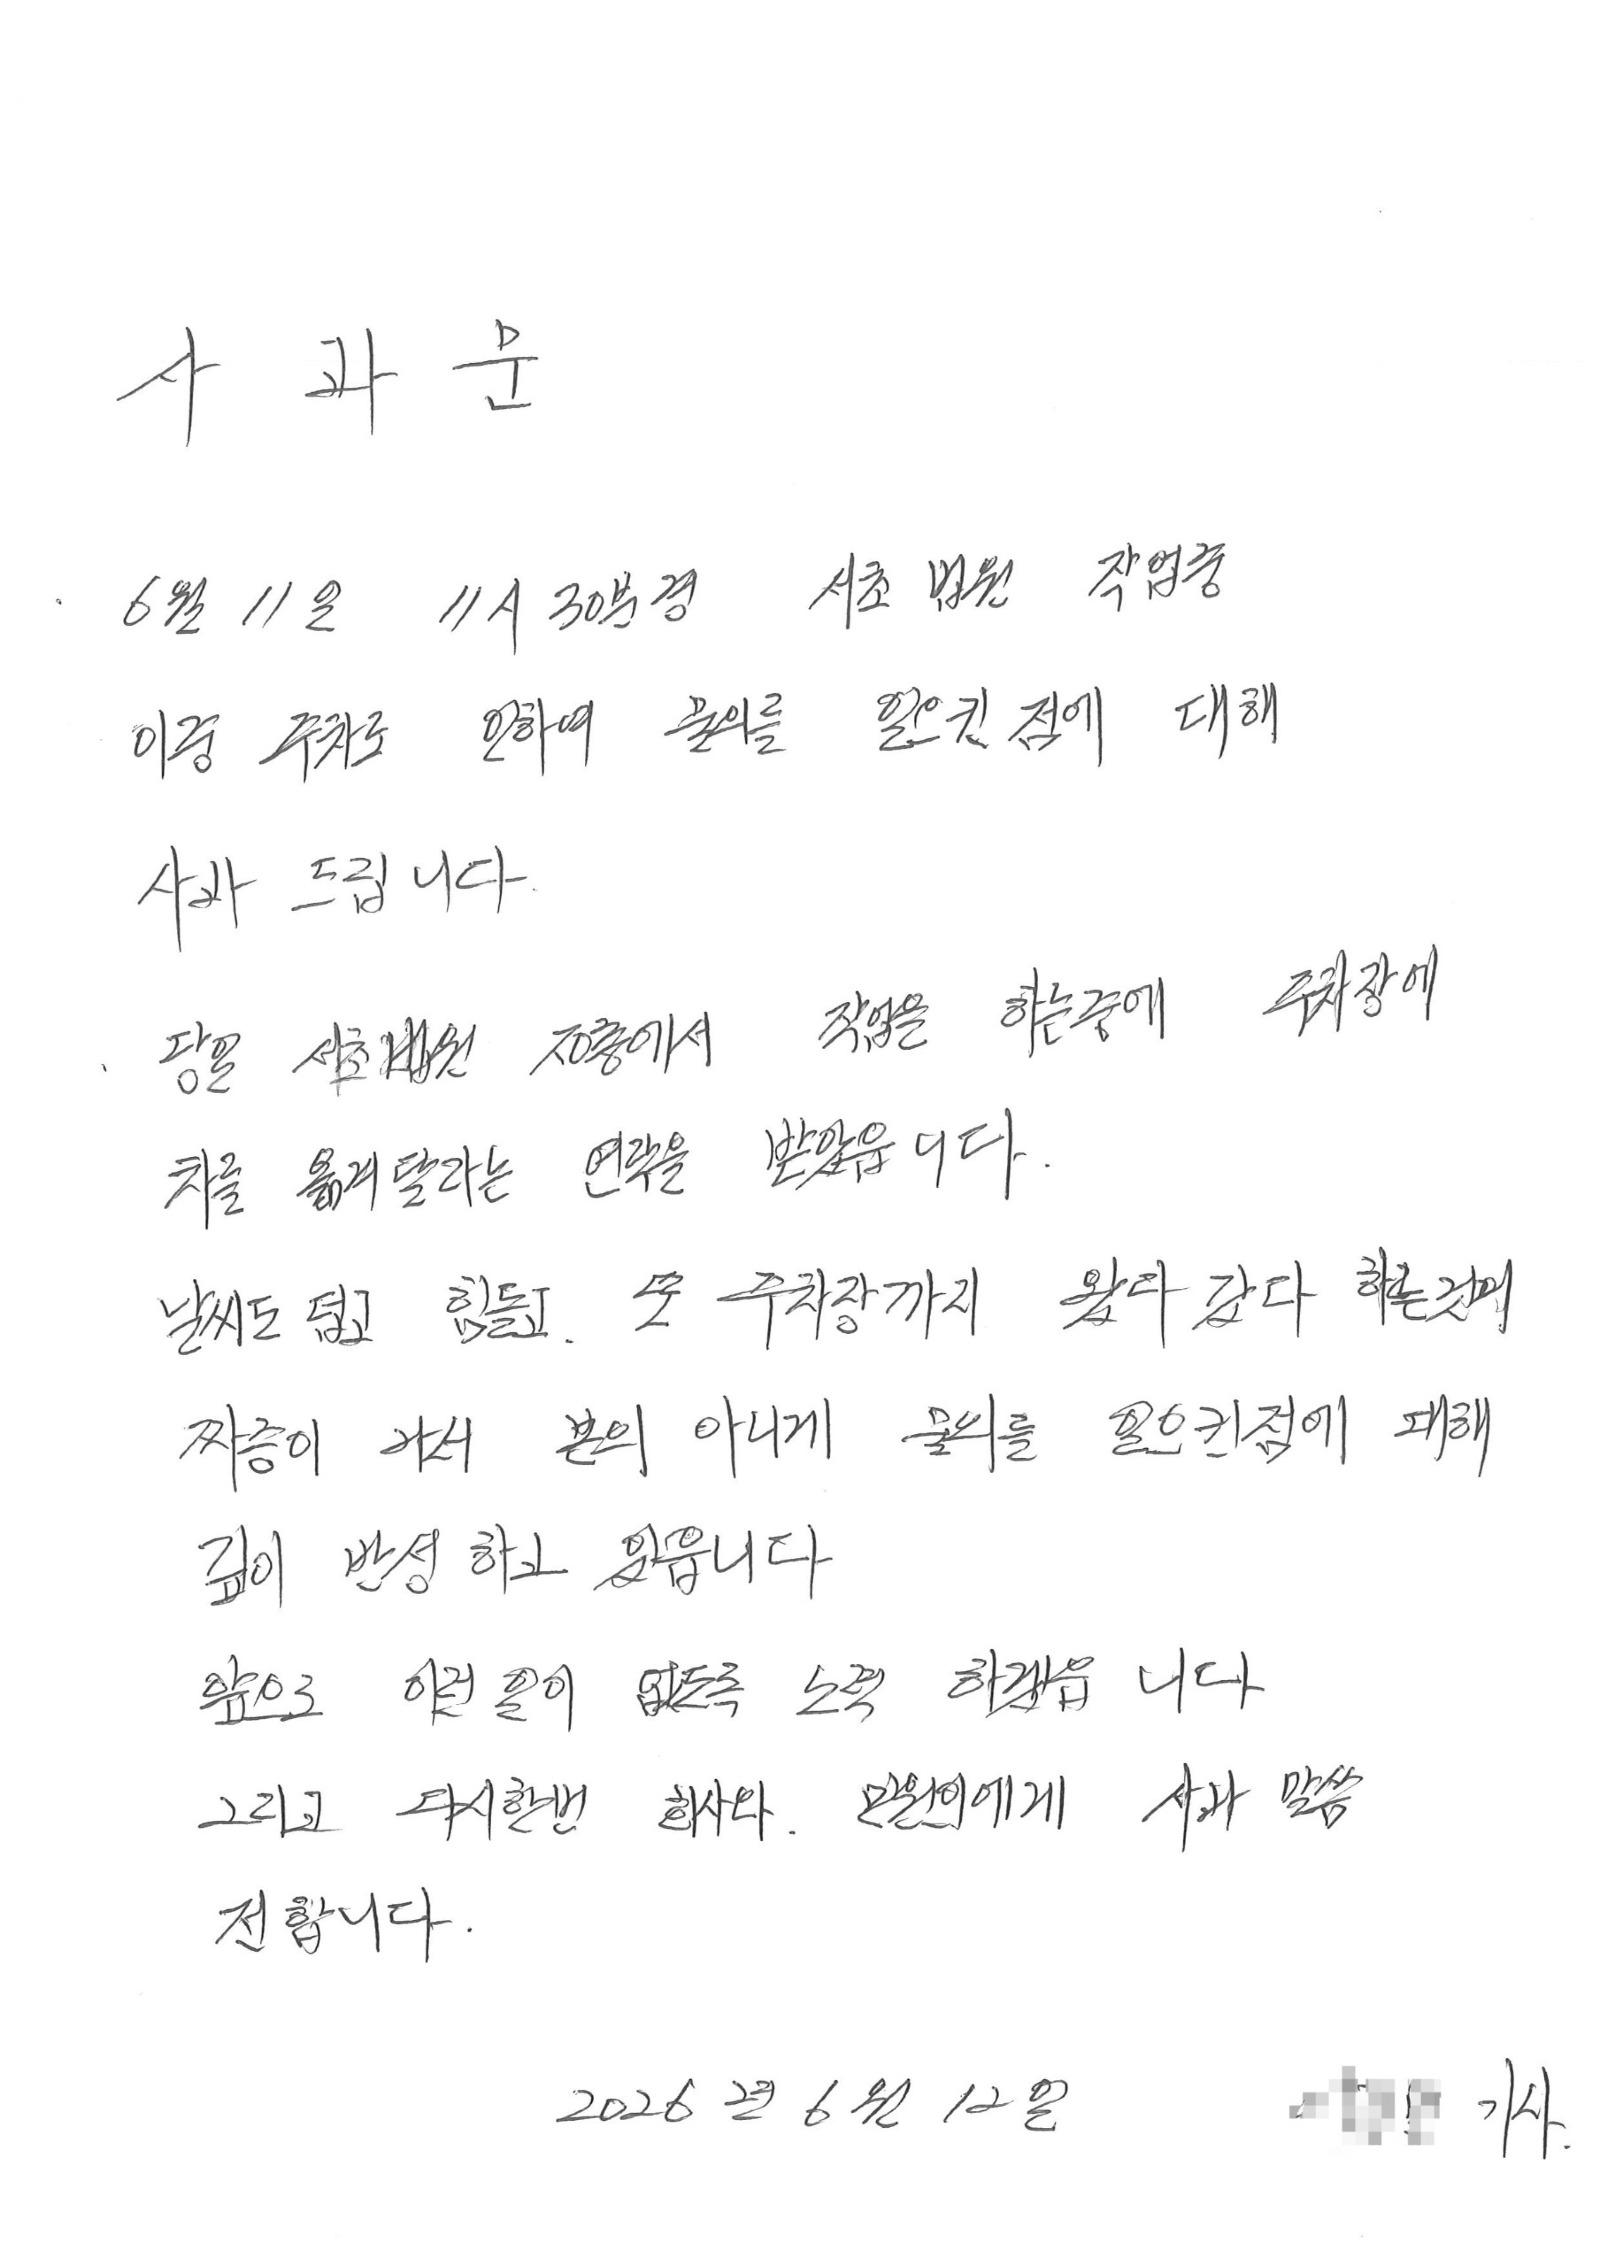 사 과 문
6월 11일 11시 30분경 서초 법원 작업중
이중 주차로 인하여 물의를 일으킨 점에 대해
사과 드립니다.
당일 서초법원 10층에서 작업을 하는중에 주차장에
차를 옮겨달라는 연락을 받았읍니다.
날씨도 덥고 힘들고. 또 주차장까지 왔다 갔다 하는것에
짜증이 나서 본의 아니게 물의를 일으킨점에 대해
깊이 반성 하고 있읍니다
앞으로 이런 일이 없도록 노력 하겠읍 니다
그리고 다시한번 회사와. 민원인에게 사과 말씀
전합니다.
2026 년 6월 12일 기사.